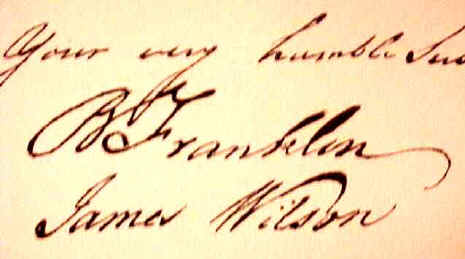 Your very humble Ser
B Franklin
James Wilson